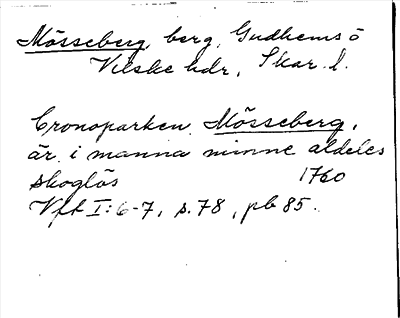 Mösseberg, berg, Gudhems ö
Vilske hdr, Skar. l.
Cronoparken Mösseberg,
är i manna minne aldeles
skoglös 1760
Vft I:6-7, s.78, pb 85.